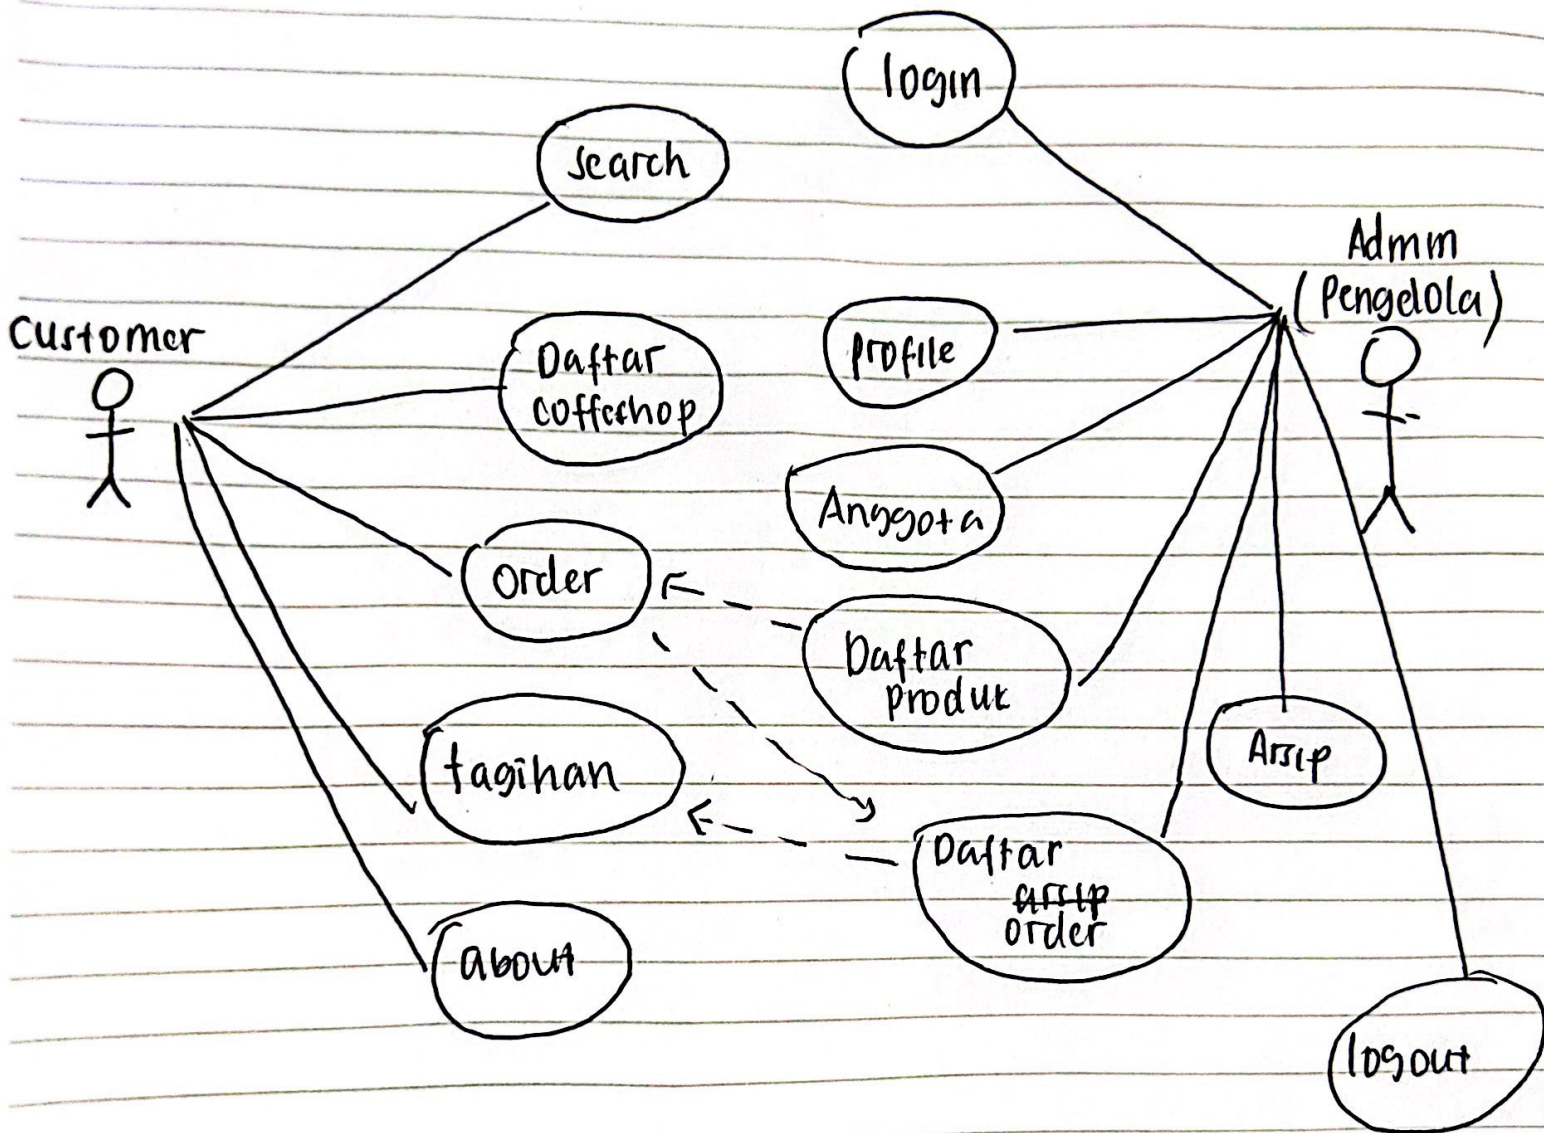 login
search
Admin
(Pengelola)
Customer
Daftar
coffeshop
profile
Anggota
order
Daftar
produk
tagihan
Arsip
Daftar
arsip
order
about
logout